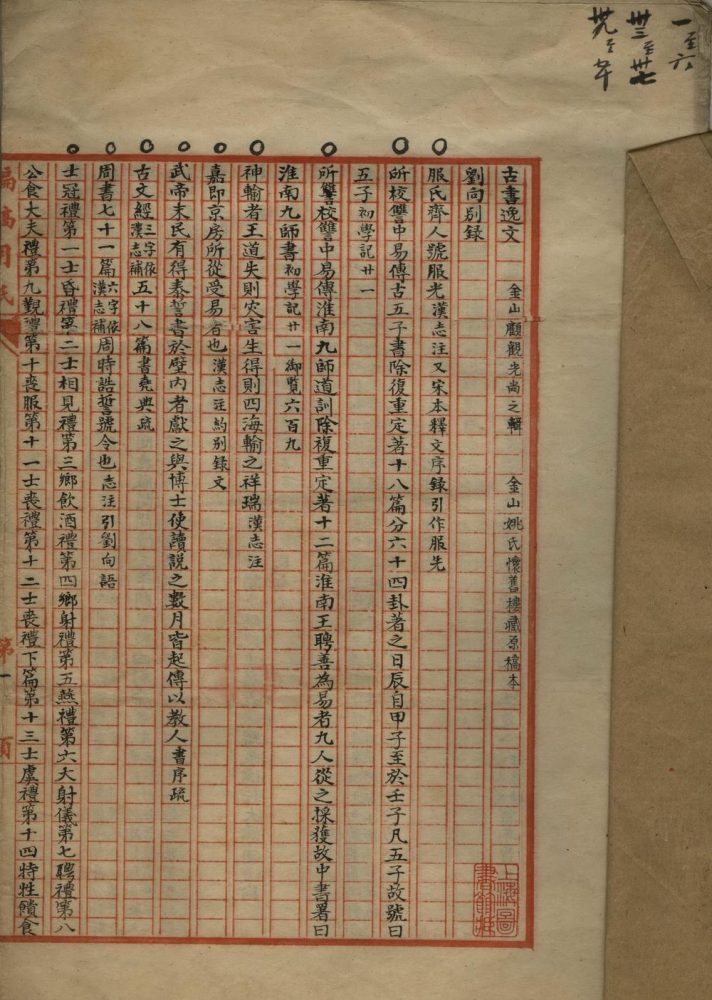 一至六
卅三至卅七
卅九至年
古書逸文 金山顧觀光尚之輯 金山姚氏懷舊樓藏原稿本
劉向別錄
服氏齊人號服光漢志注又宋本釋文序錄引作服先
所校讐中易傳古五子書除復重定著十八篇分六十四卦著之日辰自甲子至於壬子凡五子故號曰
五子初學記廿一
所讐校讐中易傳淮南九師道訓除複重定著十二篇淮南王聘善為易者九人從之採獲故中書署曰
淮南九師書初學記廿一御覽六百九
神輸者王道失則灾害生得則四海輸之祥瑞漢志注
嘉即京房所從受易者也漢志注約別錄文
武帝末民有得泰誓書於壁內者獻之與博士使讀說之數月皆起傳以教人書序疏
古文經三字依漢志補五十八篇書堯典疏
周書七十一篇六字依漢志補周時誥誓號令也志注引劉向語
士冠禮第一士昏禮第二士相見禮第三鄉飲酒禮第四鄉射禮第五燕禮第六大射儀第七聘禮第八
公食大夫禮第九覲禮第十喪服第十一士喪禮第十二士喪禮下篇第十三士虞禮第十四特牲饋食
第一頁
上海圖書館藏